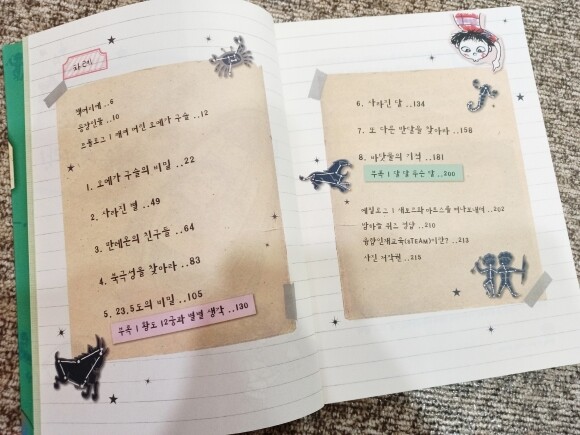 차례
책머리에 ..6
등장인물 ..10
프롤로그 | 깨어 버린 오메가 구슬 ..12
1. 오메가 구슬의 비밀 ..22
2. 사라진 별 ..49
3. 만레온의 친구들 ..64
4. 북극성을 찾아라 ..83
5. 23.5도의 비밀 ..105
부록 | 황도 12궁과 별별 생각 ..130
6. 사라진 달 ..134
7. 또 다른 반달을 찾아라 ..158
8. 바닷물의 기적 ..181
부록 | 달 달 무슨 달 ..200
에필로그 | 새포스와 마르스를 떠나보내며 ..202
퀴즈 정답 ..210
융합인재교육(STEAM)이란? ..213
사진 저작권 ..215